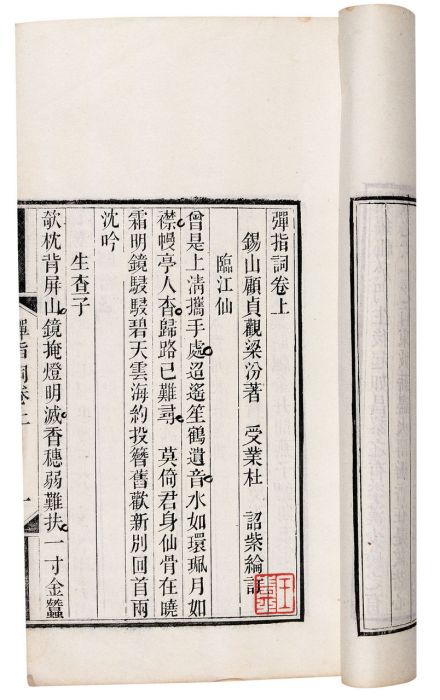 彈指詞卷上
錫山顧貞觀梁汾著　受業杜　詔紫綸訂
臨江仙
曾是上淸攜手處迢遙笙鶴遺音水如環珮月如
襟幔亭人杳歸路已難尋　莫倚君身仙骨在曉
霜明鏡駸駸碧天雲海約投簪舊歡新別回首兩
沈吟
生查子
欹枕背屏山鏡掩燈明滅香穗弱難扶一寸金蠶
彈指詞卷上
一